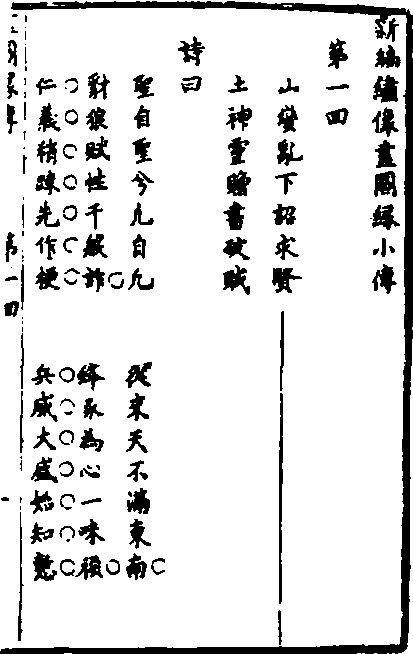 新編繡像畫圖緣小傳
第一回
山變亂下詔求賢
土神靈贈書破賊
詩曰
聖自聖兮凡自凡 從來天不滿東南
豺狼賦性千般詐 為心一味
仁義稍疎先作梗 兵威大盛始知慙
第一回